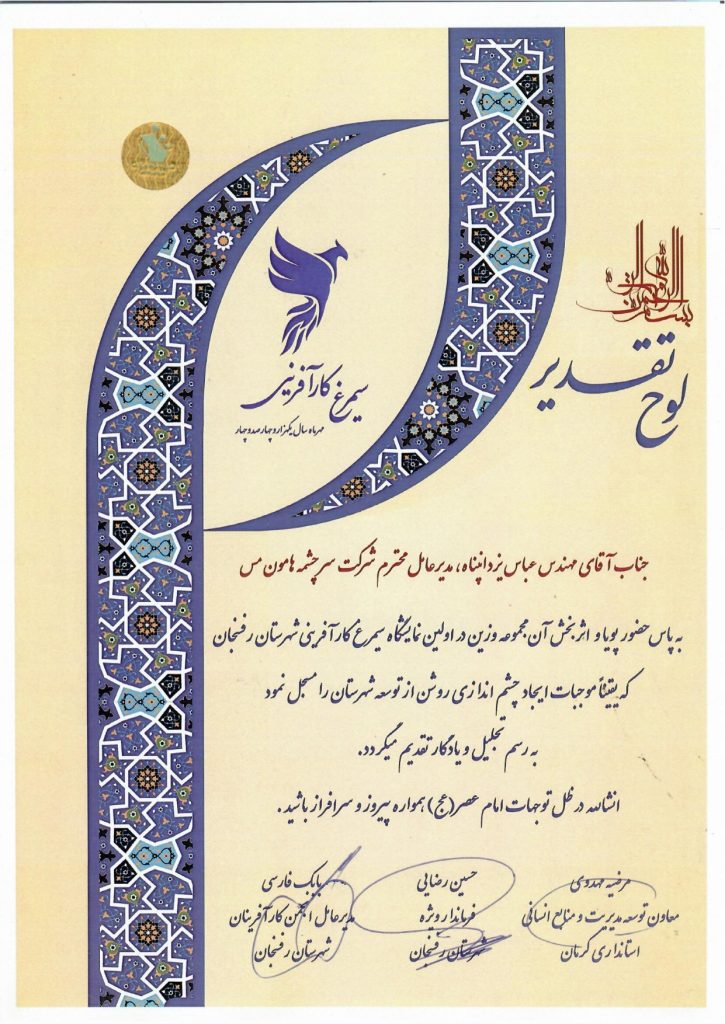 بسم الله الرحمن الرحیم
لوح تقدیر
سیمرغ کارآفرینی
مهرماه سال یکهزار و چهارصد و چهار
جناب آقای مهندس عباس یزدانپناه، مدیرعامل محترم شرکت سرچشمه هامون مس
به پاس حضور پویا و اثربخش آن مجموعه وزین در اولین نمایشگاه سیمرغ کارآفرینی شهرستان رفسنجان
که یقیناً موجبات ایجاد چشم اندازی روشن از توسعه شهرستان را مسجل نمود
به رسم تجلیل و یادگار تقدیم میگردد.
انشالله در ظل توجهات امام عصر(عج) همواره پیروز و سرافراز باشید.
مرضیه مهدوی
معاون توسعه مدیریت و منابع انسانی
استانداری کرمان
حسین رضایی
فرماندار ویژه
شهرستان رفسنجان
بابک فارسی
مدیرعامل انجمن کارآفرینان
شهرستان رفسنجان